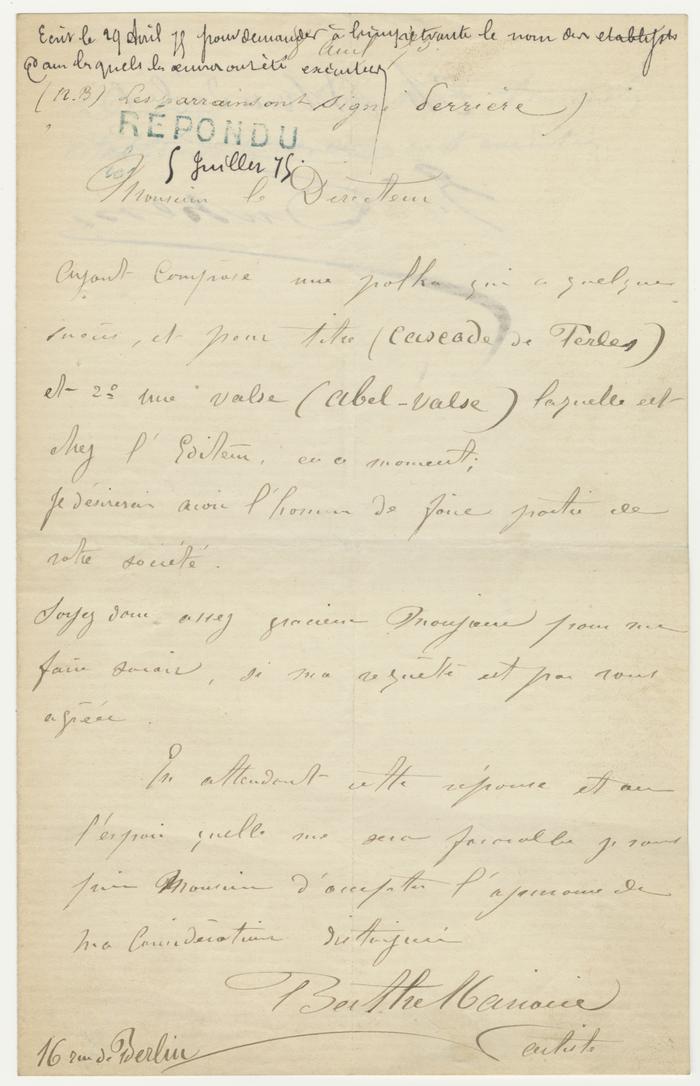 Ecrit le 29 Avril 75 pour demander à l'impétrante le nom des etablists
Dans lesquels les œuvres ont été exécutées
(N.B) Les parrains ont signé derrière)
RÉPONDU
5 Juillet 75
Monsieur le Directeur
Ayant Composé une polka qui a quelque
succès, et pour titre (Cascade de Perles)
et 2º une valse (Abel-Valse) laquelle est
chez l'Editeur, en ce moment;
Je désirerais avoir l'honneur de faire partie de
votre société.
Soyez donc assez gracieux Monsieur pour me
faire savoir, si ma requête est par vous
agréée.
En attendant cette réponse et en
l'espoir quelle me sera favorable je vous
prie Monsieur d'accepter l'assurance de
ma Considération distinguée
Berthe
artiste
16 rue de Berlin